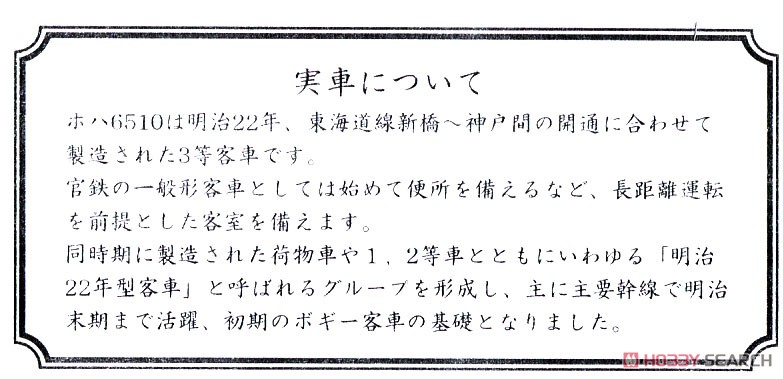 実車について
ホハ6510は明治22年、東海道線新橋～神戸間の開通に合わせて
製造された3等客車です。
官鉄の一般形客車としては始めて便所を備えるなど、長距離運転
を前提とした客室を備えます。
同時期に製造された荷物車や1，2等車とともにいわゆる「明治
22年型客車」と呼ばれるグループを形成し、主に主要幹線で明治
末期まで活躍、初期のボギー客車の基礎となりました。
HOBBY-SEARCH